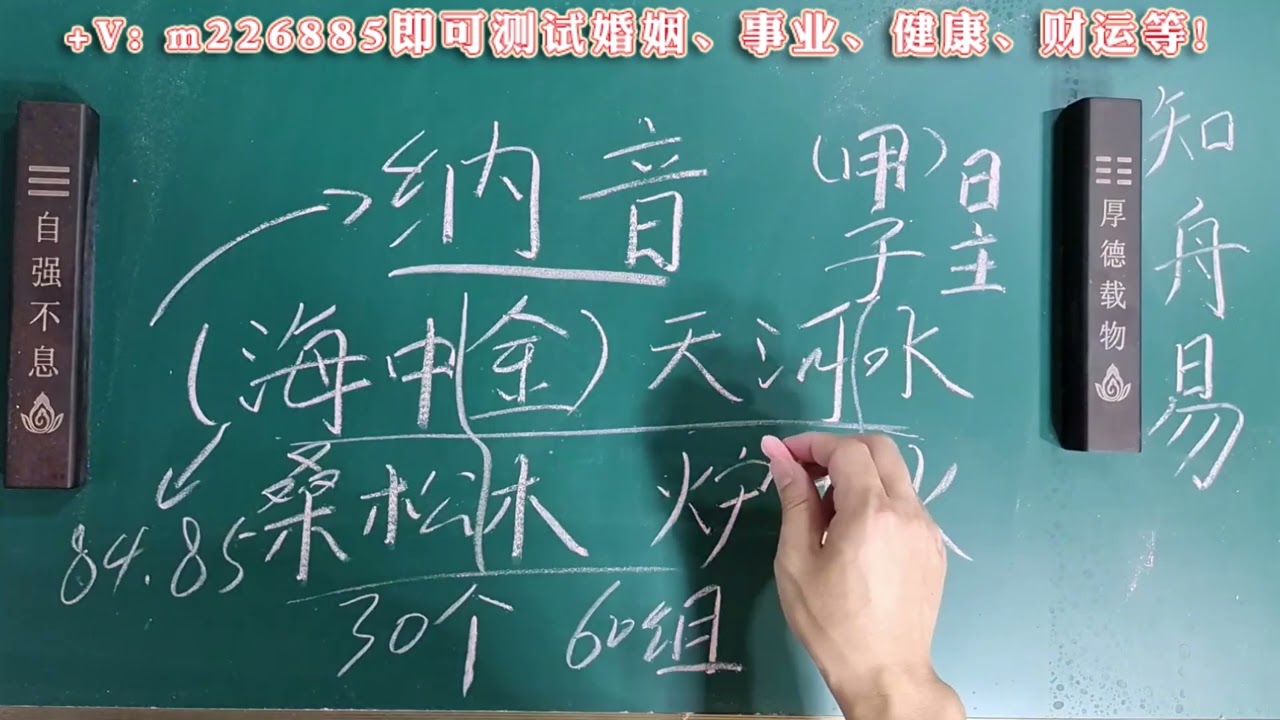 +V: m226885即可测试婚姻、事业、健康、财运等!
自强不息
纳音
(甲)日
子主
厚德载物
知舟易
(海中金) 天河水
84.85
桑松木 炉
30个 60组